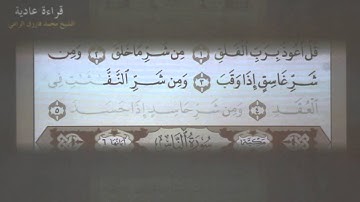 قراءة عادية
الشيخ محمد فاروق الراعي
قُلْ أَعُوذُ بِرَبِّ ٱلْفَلَقِ ١ مِن شَرِّ مَا خَلَقَ ٢ وَمِن
شَرِّ غَاسِقٍ إِذَا وَقَبَ ٣ وَمِن شَرِّ ٱلنَّفَّـٰثَـٰتِ فِى
ٱلْعُقَدِ ٤ وَمِن شَرِّ حَاسِدٍ إِذَا حَسَدَ ٥
سُورَةُ ٱلنَّاسِ